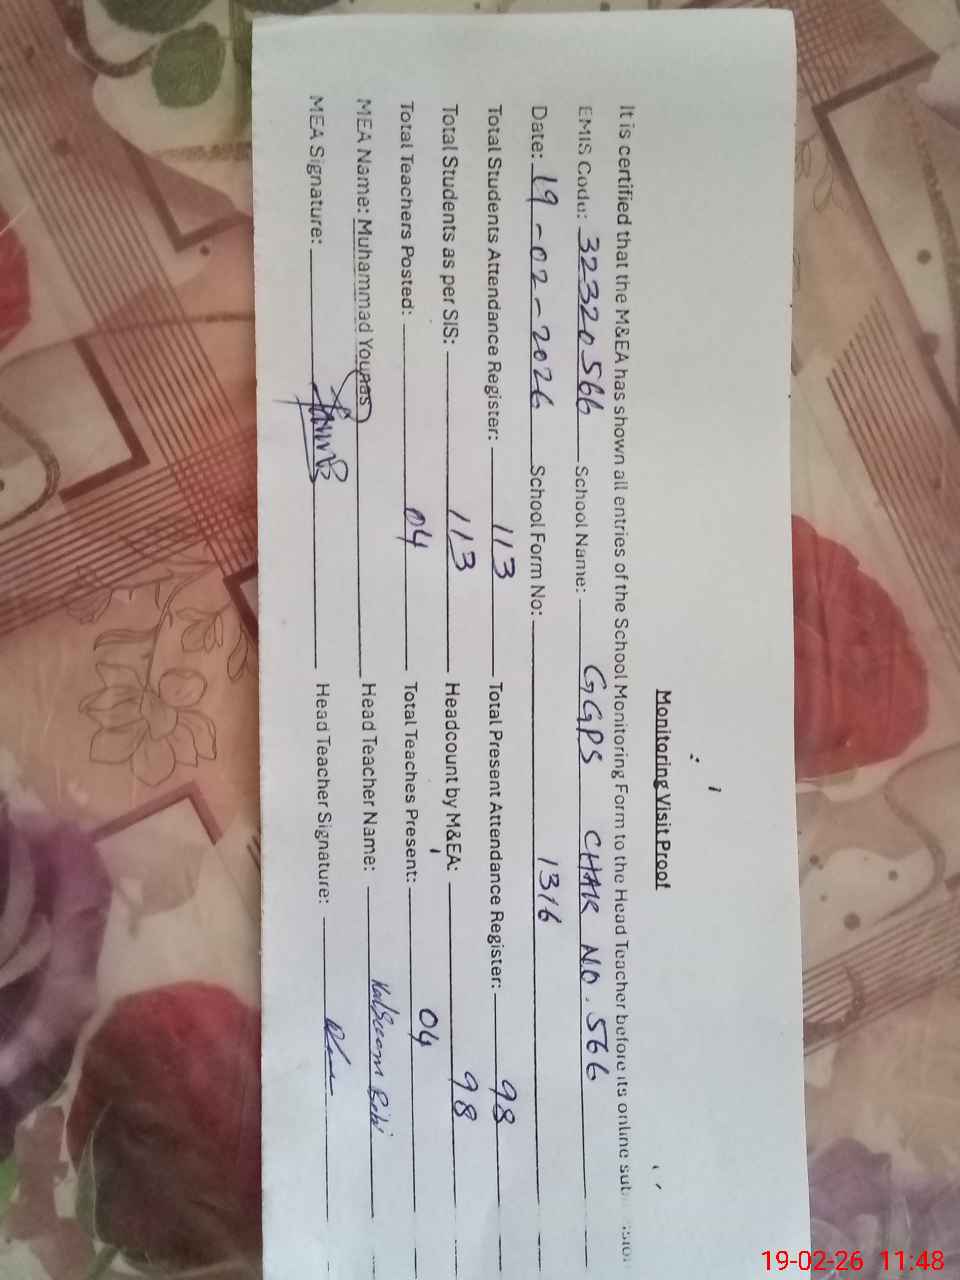 Monitoring Visit Proof
It is certified that the M&EA has shown all entries of the School Monitoring Form to the Head Teacher before its online
EMIS Code: 32320566 School Name: GGPS CHAK NO. 566
Date: 19-02-2026 School Form No: 1316
Total Students Attendance Register: 113 Total Present Attendance Register: 98
Total Students as per SIS: 113 Headcount by M&EA: 98
Total Teachers Posted: 04 Total Teaches Present: 04
MEA Name: Muhammad Younas Head Teacher Name: Kalsoom Bibi
MEA Signature: Head Teacher Signature:
19-02-26 11:48